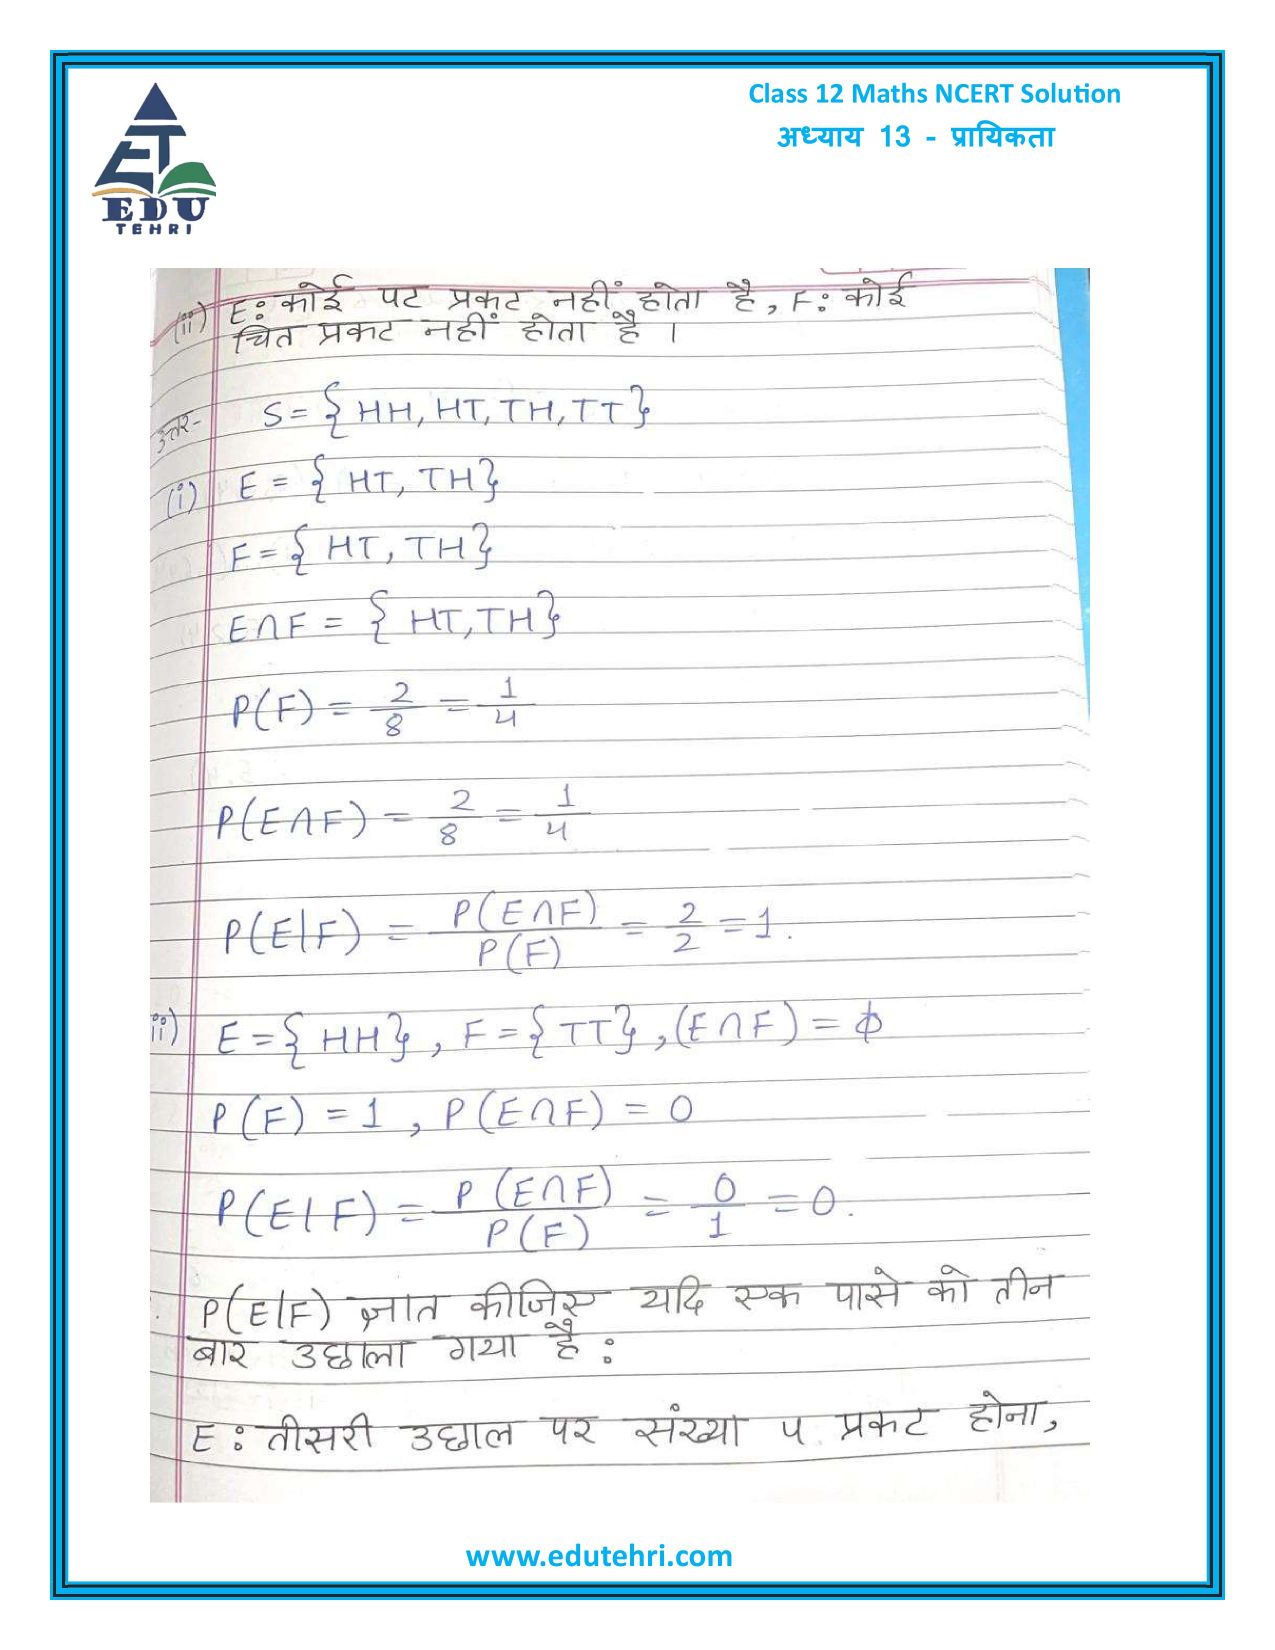 Class 12 Maths NCERT Solution
अध्याय 13 - प्रायिकता
EDU
TEHRI
(ii) E: कोई पट प्रकट नहीं होता है, F: कोई
चित प्रकट नहीं होता है ।
उत्तर- S = {HH, HT, TH, TT}
(i) E = {HT, TH}
F = {HT, TH}
E∩F = {HT, TH}
P(F) = 2/8 = 1/4
P(E∩F) = 2/8 = 1/4
P(E|F) = P(E∩F)/P(F) = 2/2 = 1.
ii) E = {HH}, F = {TT}, (E∩F) = ϕ
P(F) = 1, P(E∩F) = 0
P(E|F) = P(E∩F)/P(F) = 0/1 = 0.
P(E|F) ज्ञात कीजिए यदि एक पासे को तीन
बार उछाला गया है :
E: तीसरी उछाल पर संख्या 4 प्रकट होना,
www.edutehri.com